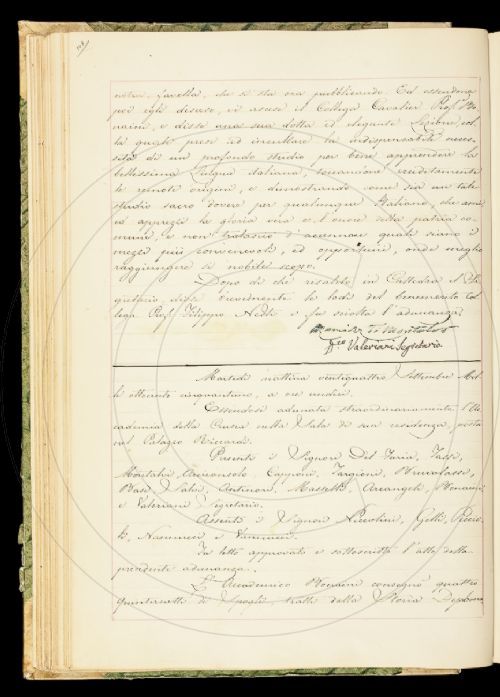 nostra favella, che si sta ora pubblicando. Ed essendone
poi egli disceso, vi ascese il Collega Cavalier Profre Bo-
naini, e disse una sua dotta ed elegante Lezione, col-
la quale prese ad inculcare la indispensabile neces-
sità di un profondo studio per bene apprendere la
bellissima Lingua italiana, toccandone eruditamente
le remote origini, e dimostrando come sia un tale
studio sacro dovere per qualunque Italiano, che ami
ed apprezzi la gloria vera e l'onore della patria co-
mune, e non tralasciò d'accennare quali siano i
mezzi più convenevoli, ed opportuni, onde meglio
raggiungere sì nobile scopo.
Dopo di che risalito in Cattedra il
disse brevemente le lodi del benemerito Col-
lega Prof. Filippo e fu sciolta l'adunanza.
Valeriani Segretario
Martedì mattina ventiquattro Settembre Mil-
le ottocento cinquantuno, a ore undici.
Essendosi adunata straordinariamente l'Ac-
cademia della Crusca nella Sala di sua residenza, posta
nel Palazzo Riccardi.
Presenti i Signori Del Furia,
Montalvi, Capponi, Targioni,
Antinori, Arcangeli, Bonaini,
e Valeriani Segretario.
Assenti i Signori Niccolini, Gelli,
Nesti e Vannucci.
Fu letto approvato e sottoscritto l'atto della
precedente adunanza.
L'Accademico Bonaini consegnò quattro
di Spogli, tratti dalla Storia